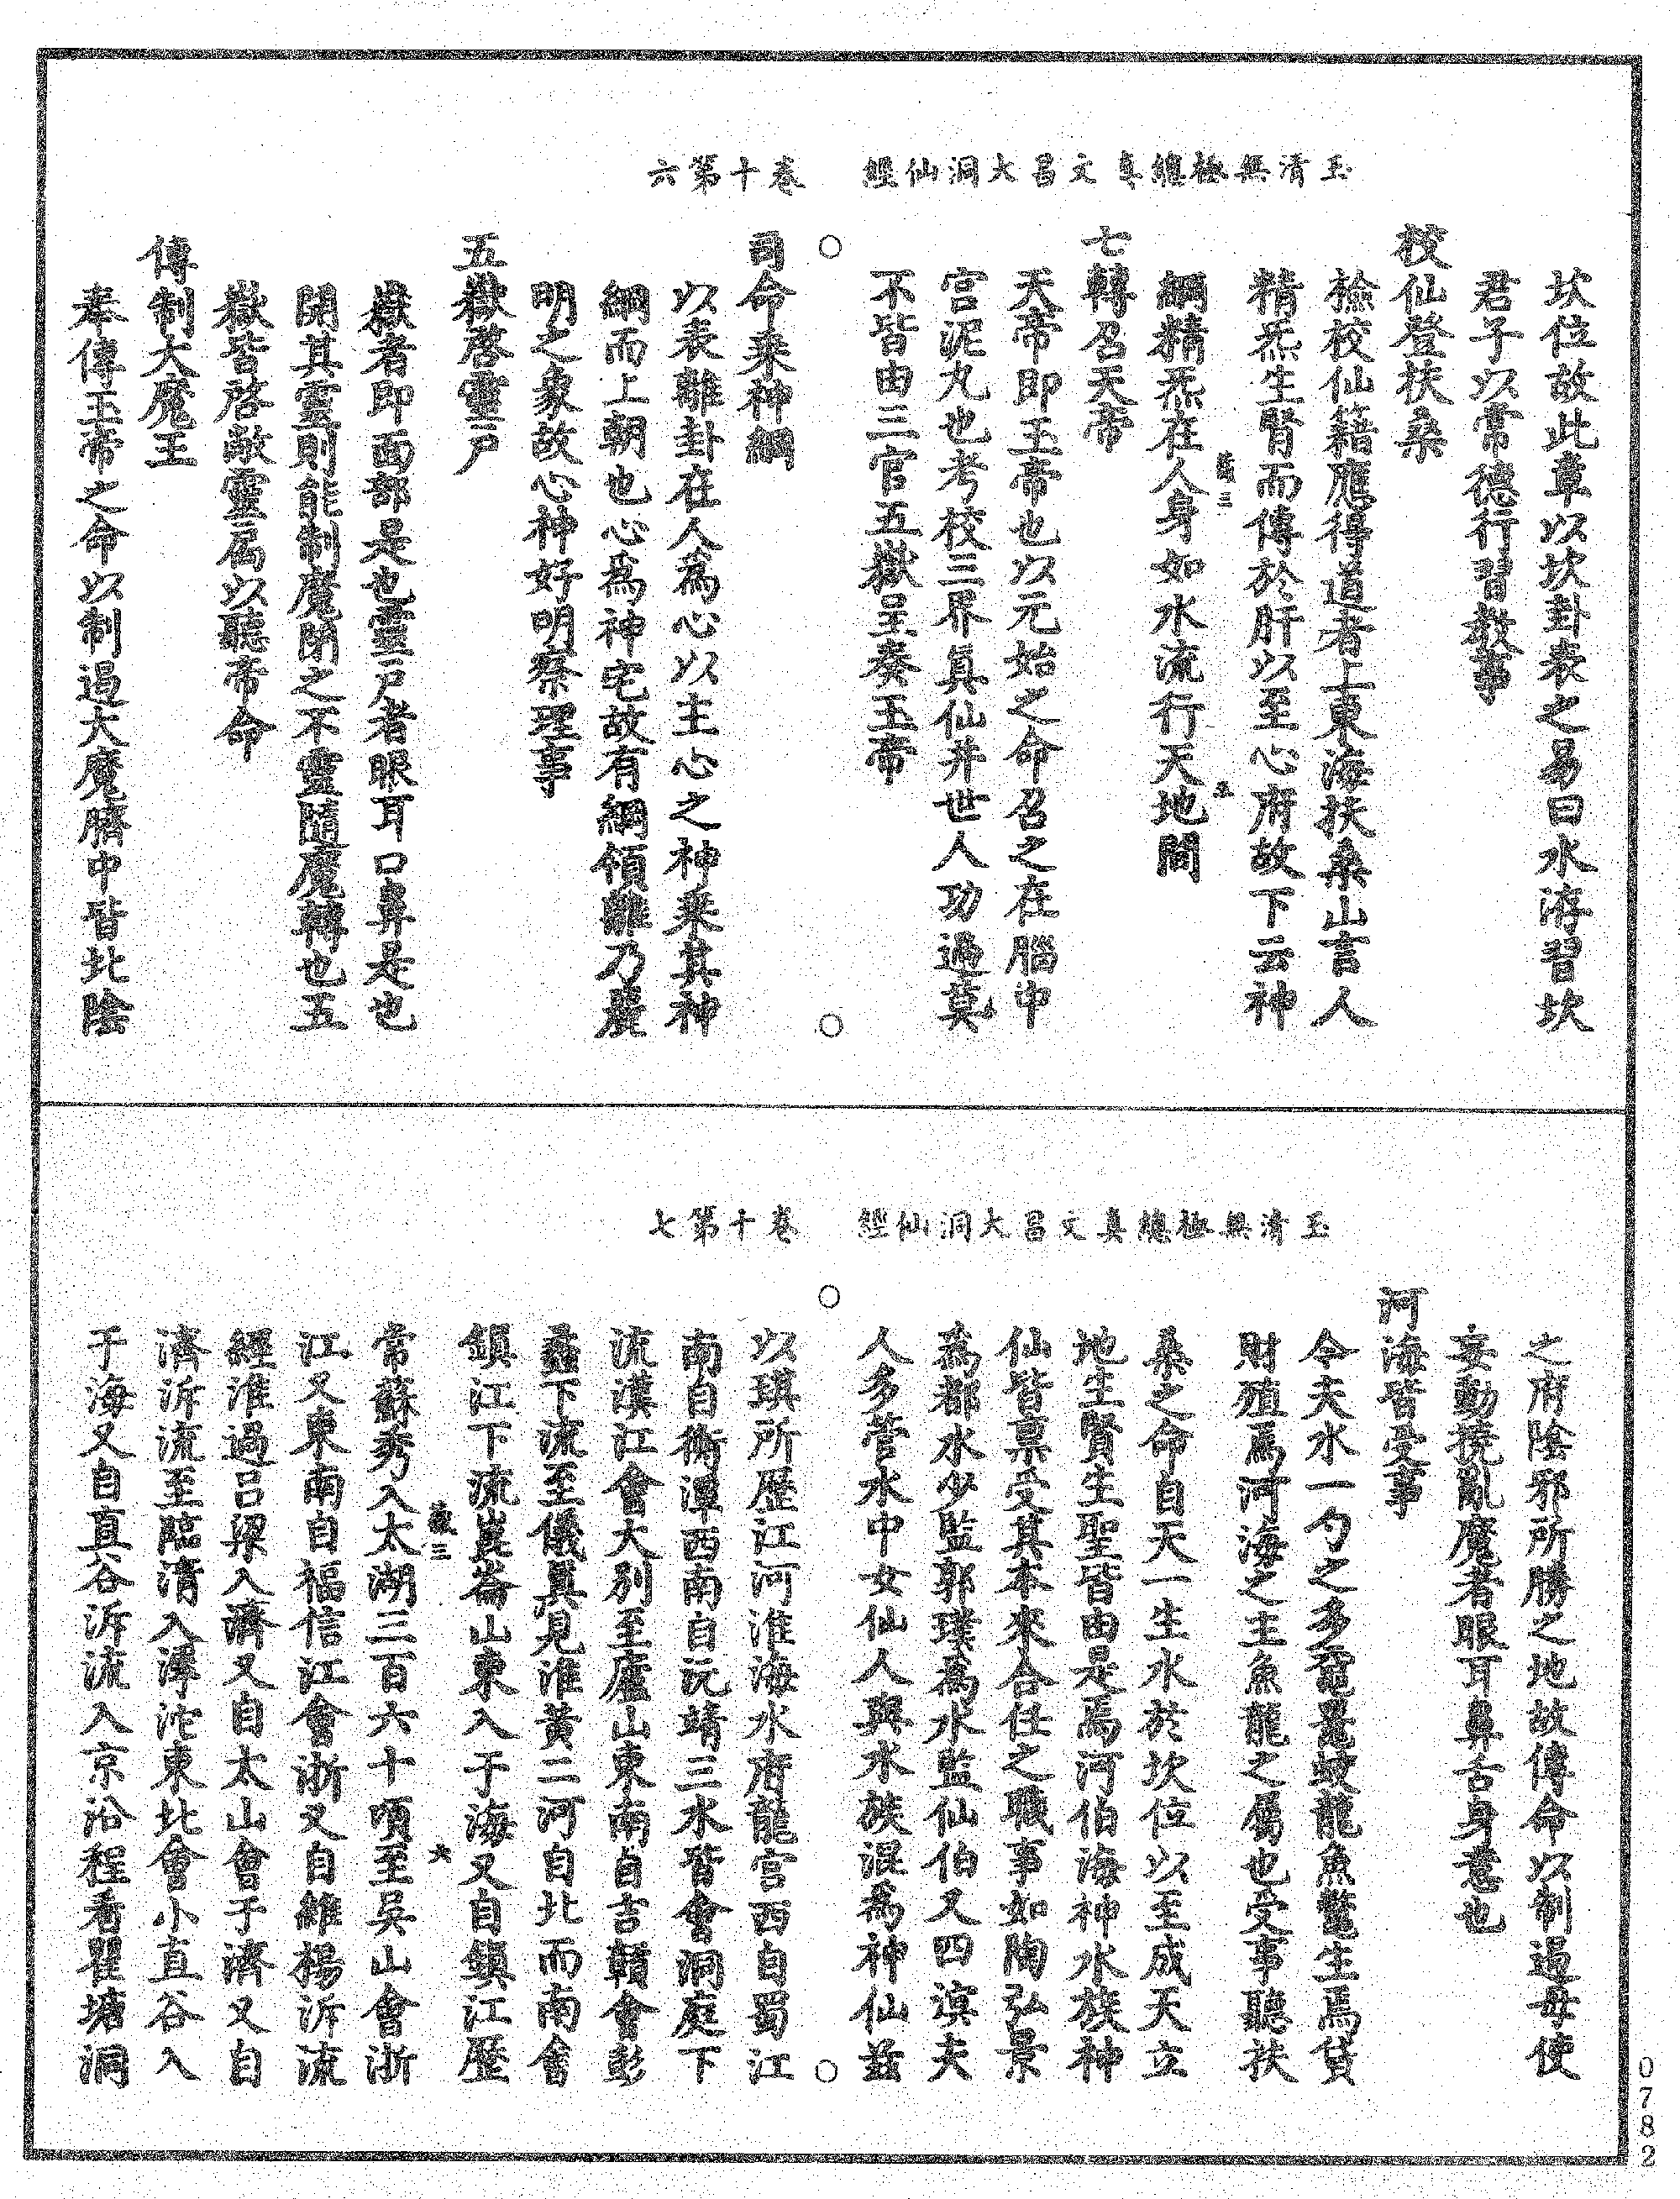 玉清無極總真文昌大洞仙經　卷十第六
坎位故此章以坎卦表之易曰水洊習坎
君子以常德行習教事
校仙登扶桑
檢校仙籍應得道者上東海扶桑山言人
精炁生腎而傳於肝以至心府故下云神
綱精炁在人身如水流行天地間
七轉召天帝
天帝即玉帝也以元始之命召之在腦中
宫泥丸也考校三界真仙并世人功過莫
不皆由三官五嶽呈奏玉帝
司命乘神綱
以表離卦在人為心以主心之神乘其神
綱而上朝也心為神宅故有綱領離乃麗
明之象故心神好明察理事
五嶽啓靈戶
嶽者即面部是也靈戶者眼耳口鼻是也
開其靈則能制魔閉之不靈隨魔轉也五
嶽皆啓敞靈局以聽帝命
傳制大魔王
奉傳玉帝之命以制遏大魔臍中皆北陰
玉清無極總真文昌大洞仙經　卷十第七
之府陰邪所勝之地故傳命以制遏毋使
妄動撓亂魔者眼耳鼻舌身意也
河海皆受事
今夫水一勺之多黿鼉蛟龍魚鱉生焉貨
財殖焉河海之主魚龍之屬也受事聽扶
桑之命自天一生水於坎位以至成天立
地生賢生聖皆由是焉河伯海神水族神
仙皆禀受其本來合任之職事如陶弘景
為都水少監郭璞為水監仙伯又四溟夫
人多管水中女仙人與水族混為神仙茲
以瑱所歷江河淮海水府龍宫西自蜀江
南自衡潭西南自沅靖三水皆會洞庭下
流漢江會大別至廬山東南自吉贛會彭
蠡下流至儀真見淮黃二河自北而南會
鎮江下流崑崙山東入于海又自鎮江歷
常蘇秀入太湖三百六十頃至吳山會浙
江又東南自福信江會浙又自維楊泝流
經淮過呂梁入濟又自太山會于濟又自
濟泝流至臨清入滹沱東北會小直谷入
于海又自直谷泝流入京沿程看瞿塘洞
0782